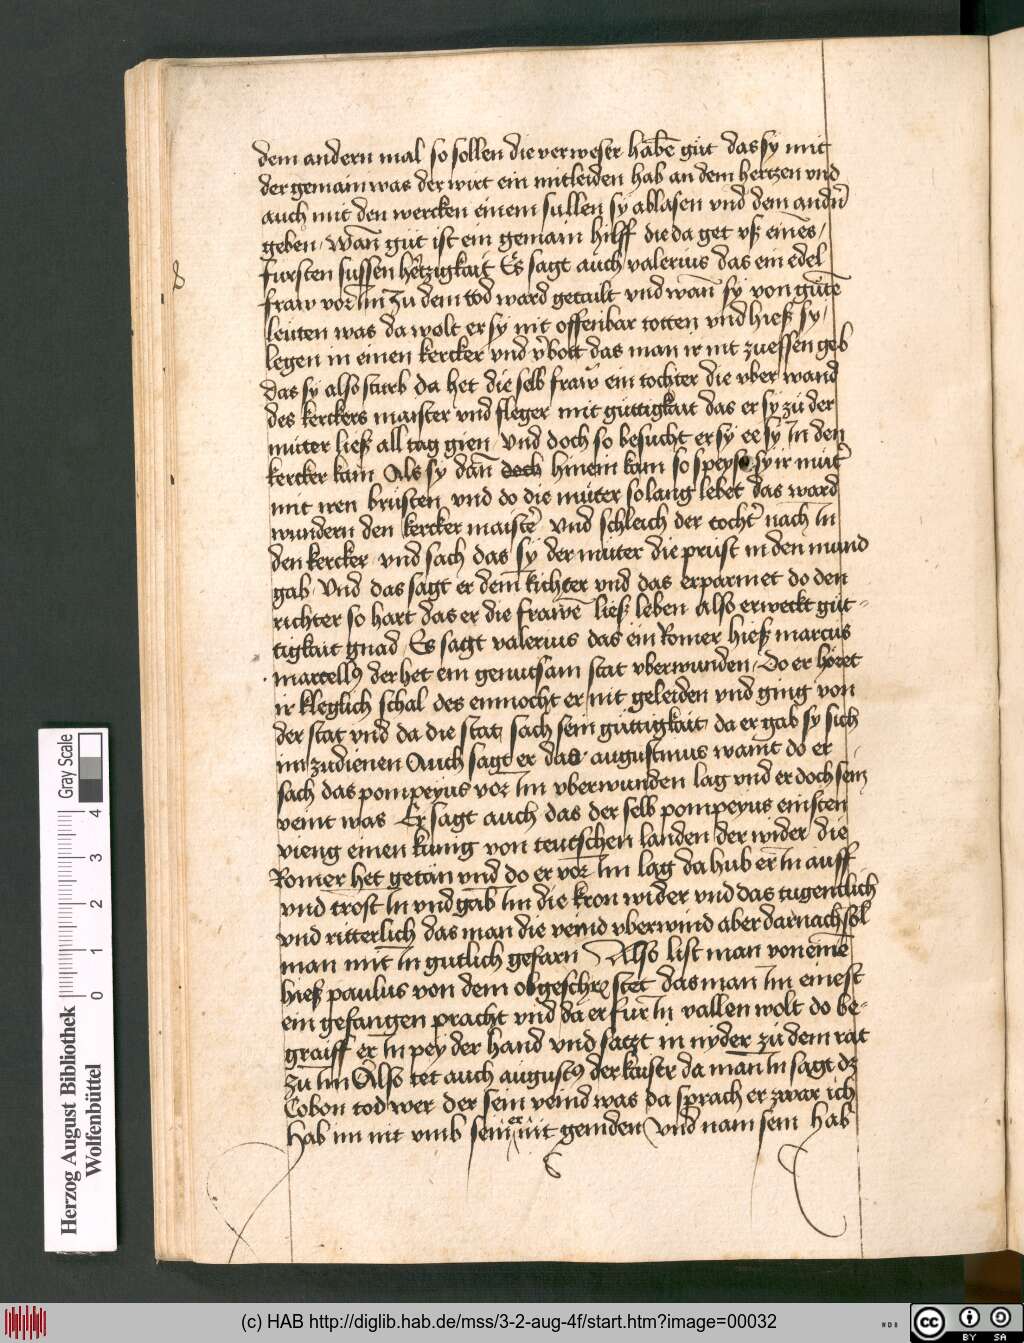 dem andern mal so sollen die verweser habē gut das sy mit
der gemain was der wirt ein mitleiden hab an dem hertzen vnd
auch mit den wercken einem sullen sy ablasen vnd dem andn̄
geben / wan̄ gut ist ein gemain hilff die da get vß eines /
fursten sussen hertzigkait Es sagt auch valerius das ein edel
fraw vor im zu dem tod ward getailt vnd wan̄ sy von gutē
leuten was da wolt er sy nit offenbar totten vnd hieß sy /
legen in einen kercker vnd v̄bott das man ir nit zu essen geb
das sy also sturb da het die selb fraw ein tochter die vber wand
des kerckers maister vnd fleger mit guttigkait das er sy zu der
muter ließ all tag gien / vnd doch so besucht er sy ee sy In den
kercker kam Als sy dan̄ doch hinein kam so speyst sy ir mut̄
mit iren brusten vnd do die muter so lang lebet das ward
wundern den kercker maist̄ vnd schleich der tocht̄ nach In
den kercker vnd sach das sy der muter die prust in den mund
gab / Vnd das sagt er dem richter vnd das erparmet do den
richter so hart das er die frawē ließ leben Also erweckt gut-
tigkait gnad / Es sagt valerius das ein Romer hieß marcus
marcellꝰ der het ein genutsam stat vberwunden / Do er horet
ir kleglich schal des enmocht er nit geleiden vnd ging von
der stat vnd da die stat sach sein guttigkait da er gab sy sich
im zu dienen Auch sagt er das augustinus waint do er
sach das pompeyus vor Im vberwunden lag vnd er doch sein
veint was Er sagt auch das der selb pompeyus einsten
vieng einen kunig von teutschen landen der wider die
Romer het getan vnd do er vor Im lag da hub er In auff
vnd trost In vnd gab Im die kron wider vnd das tugentlich
vnd ritterlich das man die veind vberwind aber darnach sol
man mit In gutlich gefarn Also list man von eimē
hieß paulus von dem obgeschrē stet das man Im einest
ein gefangen pracht vnd da er fur In vallen wolt do be-
graiff er In pey der hand vnd satzt in nyder zu dem rat
zu Im Also tet auch augustꝰ der kaiser da man In sagt dz
Cobon tod wer der sein veind was da sprach er zwar ich
hab im nit vmb sein er nit geniden vnd nam sein hab
Gray Scale
0 1 2 3 4
Herzog August Bibliothek
Wolfenbüttel
(c) HAB http://diglib.hab.de/mss/3-2-aug-4f/start.htm?image=00032
cc BY SA